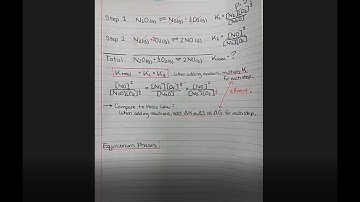 Step 1 N₂O(g) ⇌ N₂(g) + ½O₂(g) K₁ = [N₂][O₂]^½ / [N₂O]
Step 2 N₂(g) + O₂(g) ⇌ 2NO(g) K₂ = [NO]² / [N₂][O₂]
Total N₂O(g) + ½O₂(g) ⇌ 2NO(g) = ?
K total = K₁ × K₂ when adding reactions, multiply K
for each step.
[NO]² / [N₂O][O₂]^½ = [N₂][O₂]^½ / [N₂O] × [NO]² / [N₂][O₂]
→ Compare to Hess's Law:
when adding reactions, add ΔH or ΔS or ΔG for each step.
Equilibrium Phases